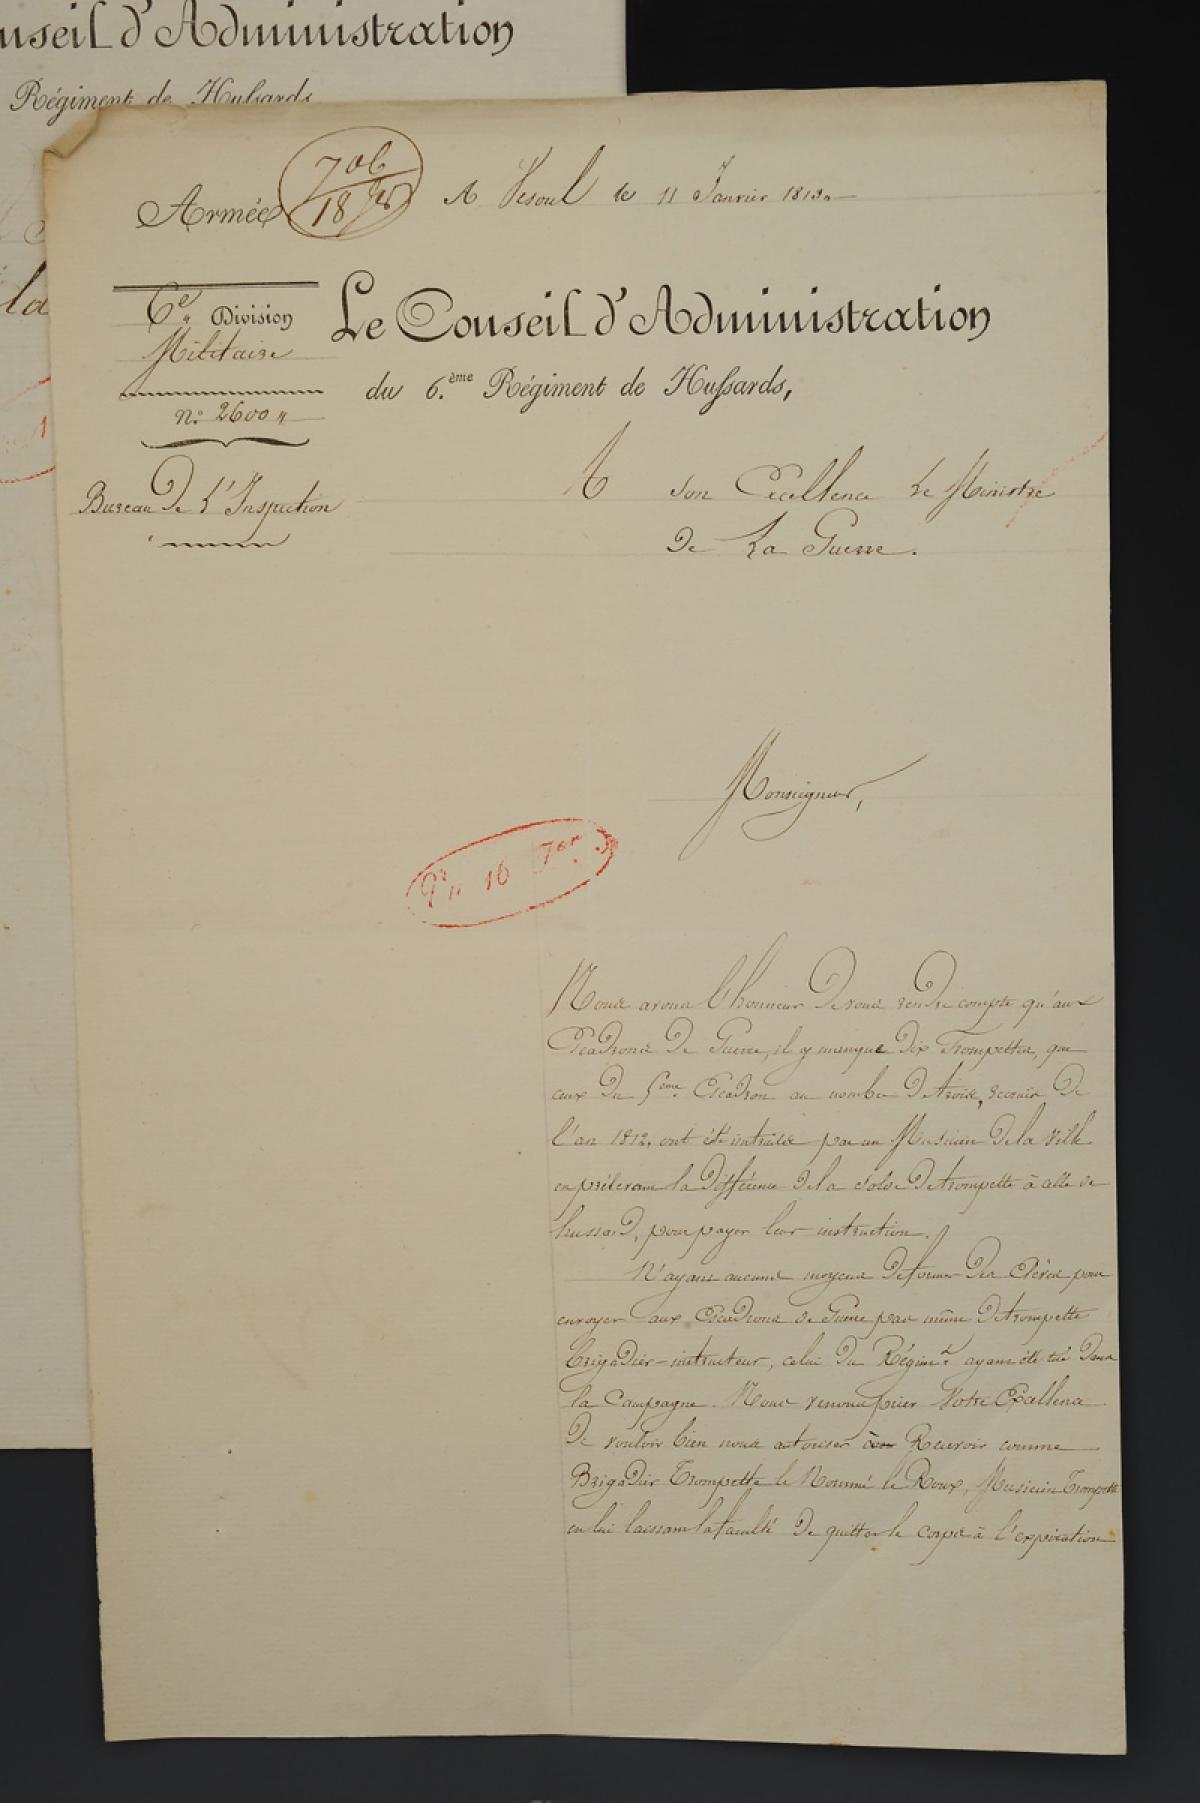 nseil d'Administration
Régiment de Hussards
la
706
18
Armée
A Vesoul le 11 Janvier 1813.
6e Division
Militaire
n.° 2600
Bureau De L'Inspection
Le Conseil d'Administration
du 6.ème Régiment de Hussards,
A Son Excellence Le Ministre
De La Guerre.
Monseigneur,
16 Jer
Nous avons l'honneur De vous rendre compte qu'aux
Escadrons De Guerre, il y manque Dix Trompettes, que
ceux Du 5eme Escadron au nombre De trois, recruis De
l'an 1812, ont été instruits par un Musicien De la ville
en prélevant la Différence De la solde De trompette à celle de
hussard, pour payer leur instruction.
N'ayant aucuns moyens De former Des Elèves pour
envoyer aux Escadrons de Guerre pas même De trompette
brigadier-instructeur, celui Du Régimt ayant été tué Dans
la Campagne. Nous venons prier Votre Excellence
De vouloir bien nous autoriser à Recevoir comme
Brigadier Trompette le Nommé le Roux, Musicien Trompette
en lui laissant la faculté De quitter le corps à l'expiration